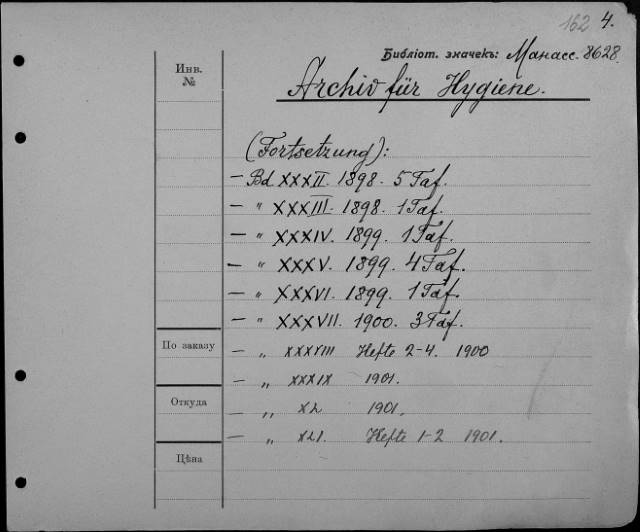 162 4.
Библіот. значекъ: Манасс. 8628.
Инв.
№
Archiv für Hygiene.
(Fortsetzung):
— Bd XXXII. 1898. 5 Taf.
— " XXXIII. 1898. 1 Taf.
— " XXXIV. 1899. 1 Taf.
— " XXXV. 1899. 4 Taf.
— " XXXVI. 1899. 1 Taf.
— " XXXVII. 1900. 3 Taf.
По заказу
— " XXXVIII Hefte 2-4. 1900
— " XXXIX 1901.
Откуда
— " XL 1901.
— " XLI. Hefte 1-2 1901.
Цѣна